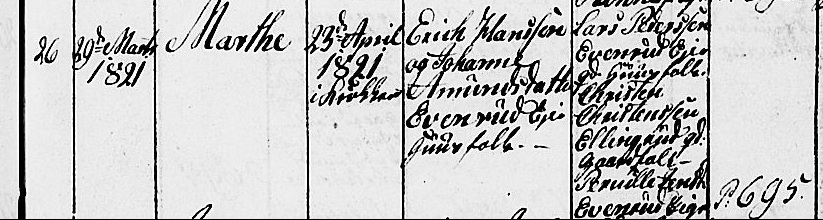 26
29de Marts
1821
Marthe
23de April
1821
i Kirkken
Erich Hanssen
og Johanne
Amundsdatter
Evenrud Eje
Huusfolk. -
Lars Pederssen
Evenrud Eje
gd. Huusfolk.
Christen
Christenssen
Ellingrud gd:
Gaardfolk -
Pernille
Evenrud Eige
P. 695.